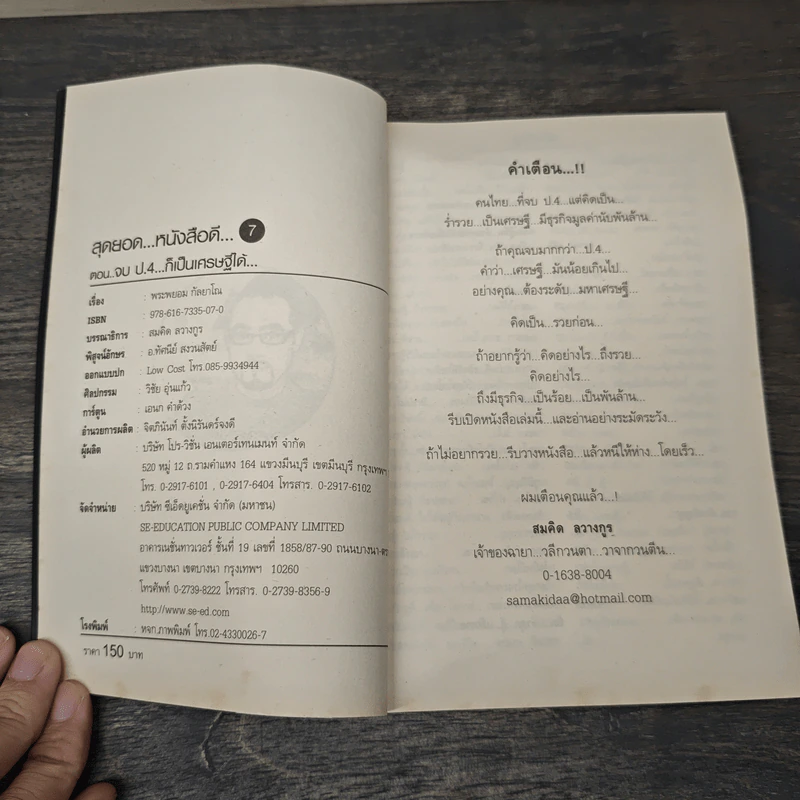 สุดยอด...หนังสือดี... 7
ตอน..จบ ป.4...ก็เป็นเศรษฐีได้...
เรื่อง : พระพยอม กัลยาโณ
ISBN : 978-616-7335-07-0
บรรณาธิการ : สมคิด ลวางกูร
พิสูจน์อักษร : อ.ทัศนีย์ สงวนสัตย์
ออกแบบปก : Low Cost โทร.085-9934944
ศิลปกรรม : วิชัย อุ่นแก้ว
การ์ตูน : เอนก คำด้วง
อำนวยการผลิต : จิตภินันท์ ตั้งนิรันดร์จงดี
ผู้ผลิต : บริษัท โปร-วิชั่น เอนเตอร์เทนเมนท์ จำกัด
520 หมู่ 12 ถ.รามคำแหง 164 แขวงมีนบุรี เขตมีนบุรี กรุงเทพฯ
โทร. 0-2917-6101 , 0-2917-6404 โทรสาร. 0-2917-6102
จัดจำหน่าย : บริษัท ซีเอ็ดยูเคชั่น จำกัด (มหาชน)
SE-EDUCATION PUBLIC COMPANY LIMITED
อาคารเนชั่นทาวเวอร์ ชั้นที่ 19 เลขที่ 1858/87-90 ถนนบางนา-ตร
แขวงบางนา เขตบางนา กรุงเทพฯ 10260
โทรศัพท์ 0-2739-8222 โทรสาร. 0-2739-8356-9
http://www.se-ed.com
โรงพิมพ์ : หจก.ภาพพิมพ์ โทร.02-4330026-7
ราคา 150 บาท
คำเตือน...!!
คนไทย...ที่จบ ป.4...แต่คิดเป็น...
ร่ำรวย...เป็นเศรษฐี...มีธุรกิจมูลค่านับพันล้าน...
ถ้าคุณจบมากกว่า...ป.4...
คำว่า...เศรษฐี...มันน้อยเกินไป...
อย่างคุณ...ต้องระดับ...มหาเศรษฐี...
คิดเป็น...รวยก่อน...
ถ้าอยากรู้ว่า...คิดอย่างไร...ถึงรวย...
คิดอย่างไร...
ถึงมีธุรกิจ...เป็นร้อย...เป็นพันล้าน...
รีบเปิดหนังสือเล่มนี้...และอ่านอย่างระมัดระวัง...
ถ้าไม่อยากรวย...รีบวางหนังสือ...แล้วหนีให้ห่าง...โดยเร็ว...
ผมเตือนคุณแล้ว...!
สมคิด ลวางกูร
เจ้าของฉายา...วลีกวนตา...วาจากวนตีน...
0-1638-8004
samakidaa@hotmail.com